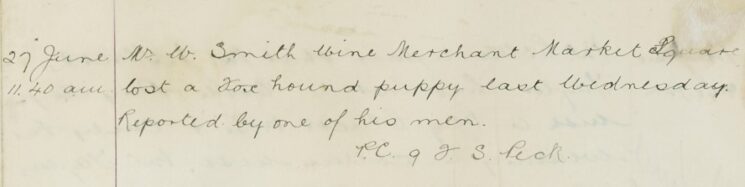 27 June Mr. W. Smith Wine Merchant Market Square
11.40 am lost a Fox hound puppy last Wednesday.
Reported by one of his men.
P.C. 9 F. S. Peck.